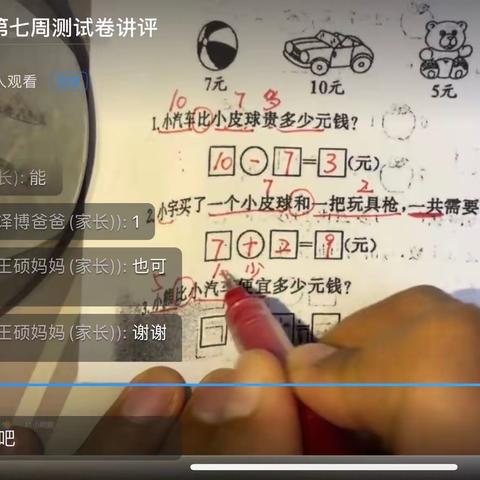 第七周测试卷讲评
人观看
7元 10元 5元
10 7 多
1.小汽车比小皮球贵多少元钱?
10-7=3(元)
长): 能
7 2
2.小宇买了一个小皮球和一把玩具枪,一共需要
泽博爸爸(家长)): 1
7+2=9(元)
王硕妈妈(家长)): 也可
5 10 少
3.小熊比小汽车便宜多少元钱?
王硕妈妈(家长)): 谢谢
吧